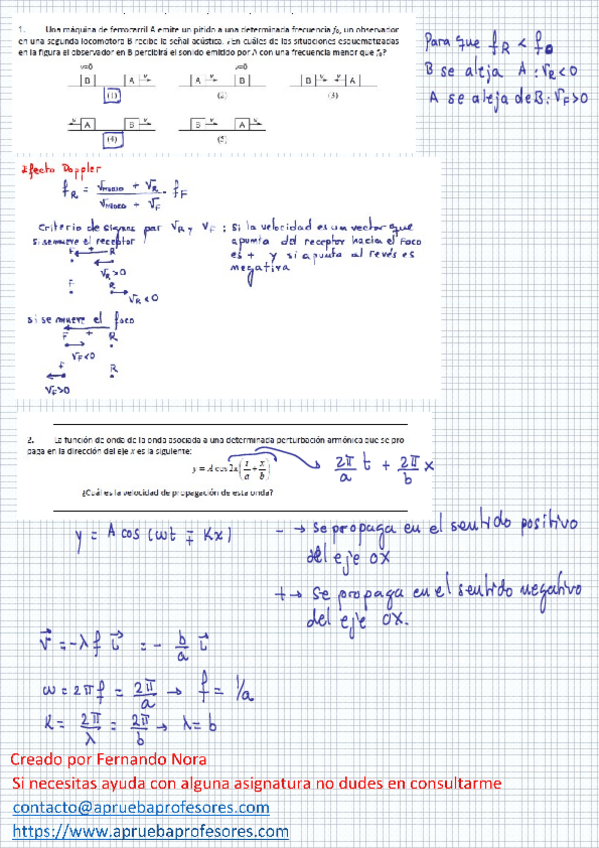 1. Una máquina de ferrocarril A emite un pitido a una determinada frecuencia f₀, un observador
en una segunda locomotora B recibe la señal acústica. ¿En cuáles de las situaciones esquematizadas
en la figura el observador en B percibirá el sonido emitido por A con una frecuencia menor que f₀?
Para que f_R < f₀
B se aleja A : v_R < 0
A se aleja de B : v_F > 0
v=0 v=0
B A v A B v B v A
(1) (2) (3)
v A B v A B
(4) (5)
Efecto Doppler
f_R = (v_medio + v_R) / (v_medio + v_F) · f_F
Criterio de signos par v_R y v_F : Si la velocidad es un vector que
apunta del receptor hacia el foco
es + y si apunta al revés es
negativa
Si se mueve el receptor
F + R
v_R > 0
F R
v_R < 0
Si se mueve el foco
+ R
F
v_F < 0
F R
v_F > 0
2. La función de onda de la onda asociada a una determinada perturbación armónica que se pro
paga en la dirección del eje x es la siguiente:
y = A cos 2π (t/a + x/b) → 2π/a t + 2π/b x
¿Cuál es la velocidad de propagación de esta onda?
y = A cos (ωt ∓ Kx)
- → Se propaga en el sentido positivo
del eje OX
+ → Se propaga en el sentido negativo
del eje OX.
v⃗ = -λ f i⃗ = - b/a i⃗
ω = 2πf = 2π/a → f = 1/a
K = 2π/λ = 2π/b → λ = b
Creado por Fernando Nora
Si necesitas ayuda con alguna asignatura no dudes en consultarme
contacto@apruebaprofesores.com
https://www.apruebaprofesores.com